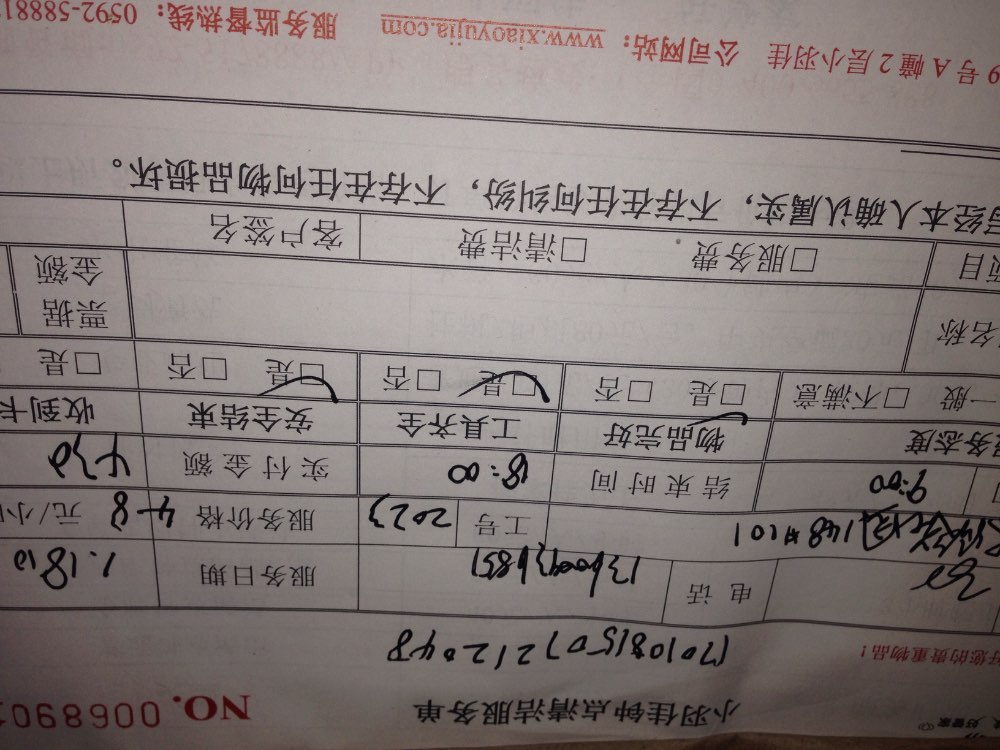 NO. 0068901
小羽佳钟点清洁服务单
好您的贵重物品！
1701081507212048
电话 服务日期 1.18
148#101 工号 2023 服务价格 元/小
9:00 结束时间 18:00 实付金额 430
务态度 物品完好 工具齐全 安全结束 收到卡
一般 □不满意 □是 □否 □是 □否 □是 □否 □是
名称 票据金额
项目 □服务费 □清洁费 客户签名
经本人确认属实，不存在任何纠纷，不存在任何物品损坏。
9号A幢2层小羽佳 公司网站：www.xiaoyujia.com 服务监督热线：0592-5888